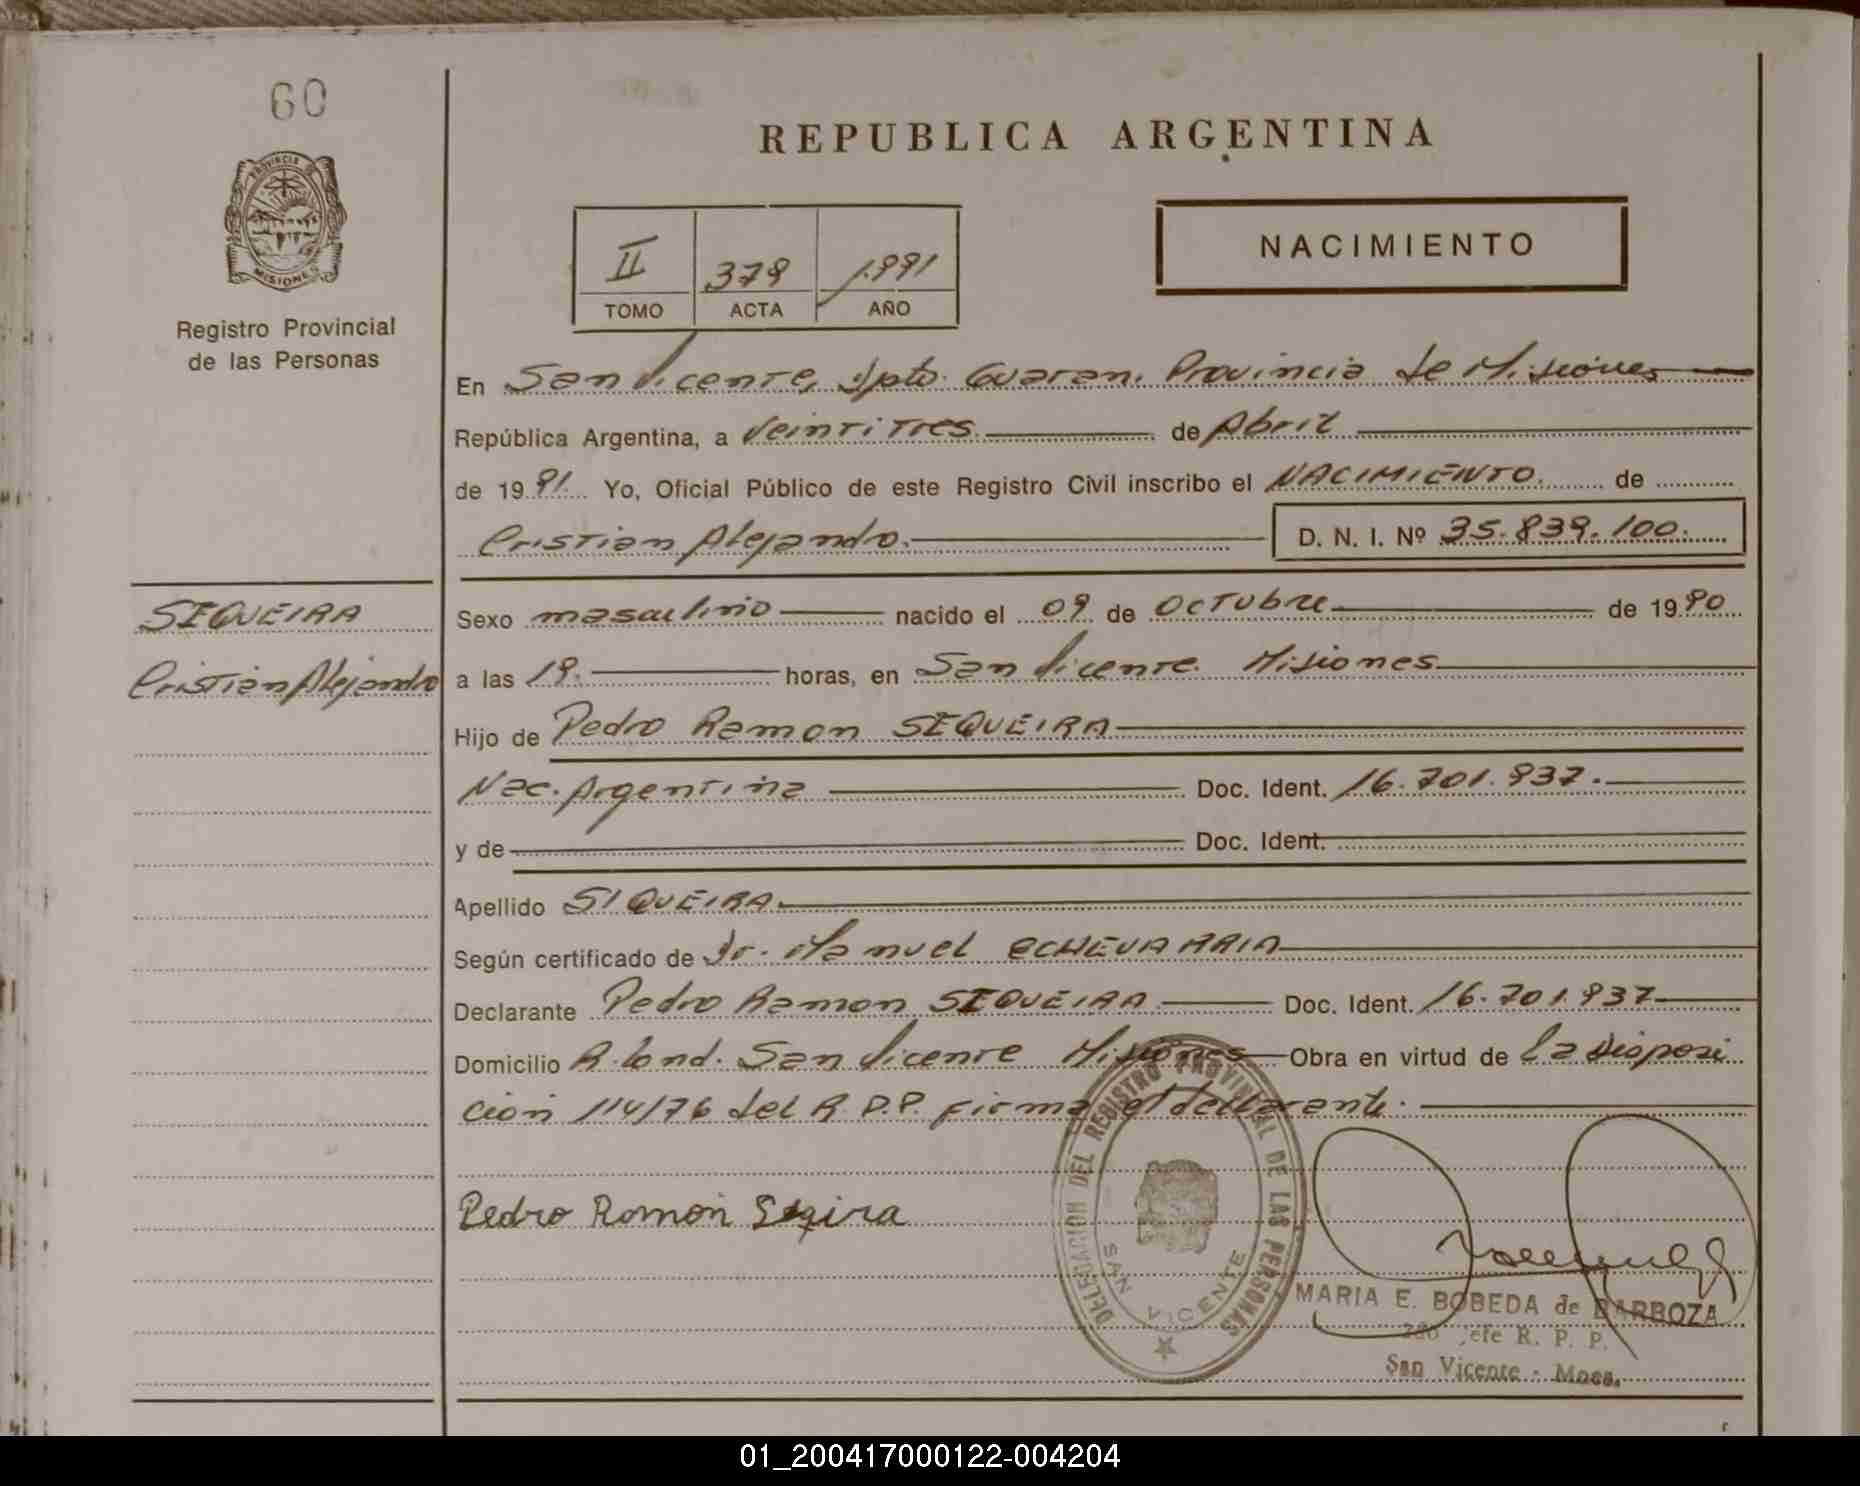 60
PROVINCIA
MISIONES
Registro Provincial
de las Personas
REPUBLICA ARGENTINA
II 379 1.991
TOMO ACTA AÑO
NACIMIENTO
En San Vicente, Dpto. Guaraní Provincia de Misiones
República Argentina, a Veintitres de Abril
de 1991. Yo, Oficial Público de este Registro Civil inscribo el NACIMIENTO de
Cristian Alejandro. D. N. I. Nº 35.839.100.
SEQUEIRA
Cristian Alejandro
Sexo masculino nacido el 09 de Octubre de 1990
a las 19. horas, en San Vicente. Misiones
Hijo de Pedro Ramon SEQUEIRA
Nac. Argentina Doc. Ident. 16.701.937.
y de Doc. Ident.
Apellido SIQUEIRA.
Según certificado de Dr. Manuel ECHEVARRIA
Declarante Pedro Ramon SEQUEIRA Doc. Ident. 16.701.937
Domicilio San Vicente Misiones Obra en virtud de la Disposi
ción 114/76 del R.P.P. firma el declarante.
Pedro Ramon
DELEGACION DEL REGISTRO PROVINCIAL DE LAS PERSONAS
SAN VICENTE
MARIA E. BOBEDA de BARBOZA
2do Jefe R. P. P.
San Vicente - Mnes.
01_200417000122-004204